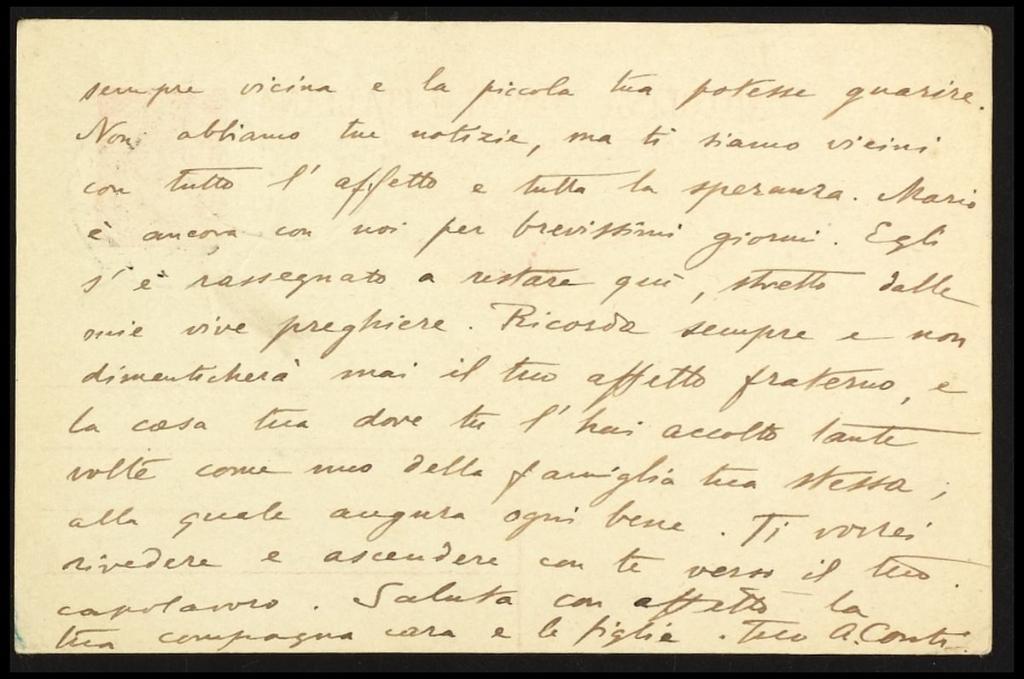 sempre vicina e la piccola tua potesse guarire.
Non abbiamo tue notizie, ma ti siamo vicini
con tutto l'affetto e tutta la speranza. Mario
è ancora con noi per brevissimi giorni. Egli
s'è rassegnato a restare qui, stretto dalle
mie vive preghiere. Ricorda sempre e non
dimenticherà mai il tuo affetto fraterno, e
la casa tua dove tu l'hai accolto tante
volte come uno della famiglia tua stessa;
alla quale augura ogni bene. Ti vorrei
rivedere e ascendere con te verso il tuo
capolavoro. Saluta con affetto la
tua compagna cara e le figlie. Tuo A. Conti.